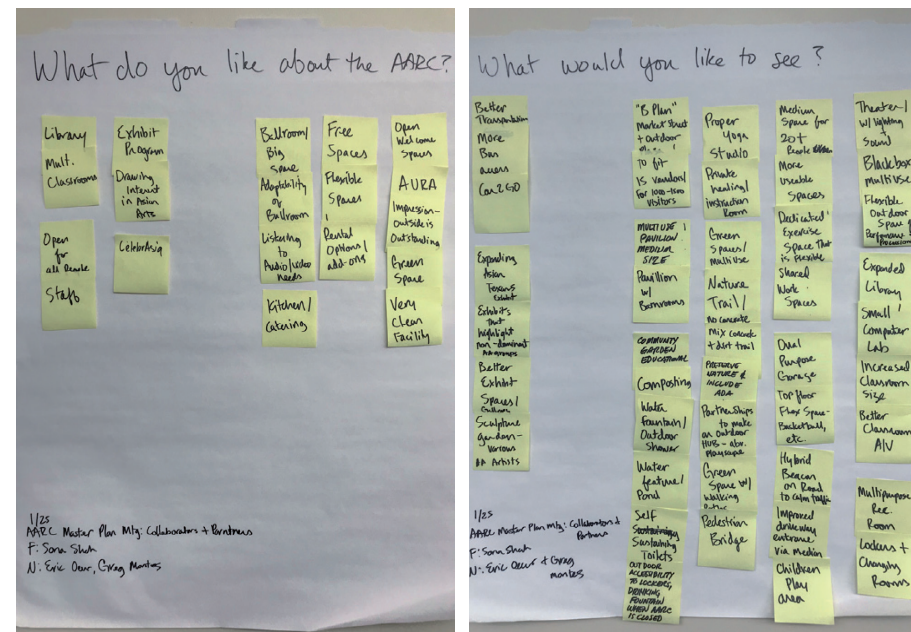 What do you like about the AARC?
Library
Mult.
Classrooms
Open
for
all People
Staff
Exhibit
Program
Drawing
Interest
in Asian
Arts
CelebrAsia
Ballroom/
Big
space
Adaptability
of
Ballroom
Listening
to
Audio/video
needs
Kitchen/
Catering
Free
Spaces
Flexible
Spaces
Rental
Options/
add-ons
Open
Welcome
Spaces
AURA
Impression-
outside is
Outstanding
Green
Space
Very
Clean
Facility
1/25
AARC Master Plan Mtg: Collaborators + Partners
F: Sona Shah
N: Eric Oeur, Greg Montes
What would you like to see?
Better
Transportation
More
Bus
access
Car2Go
Expanding
Asian
Texans
Exhibit
Exhibits
that
highlight
non-dominant
AA groups
Better
Exhibit
Spaces/
Sculpture
garden-
various
AA Artists
"B Plan"
Market Street
+ Outdoor
to fit
15 vendors/
for 1000-1500
visitors
MULTIUSE
PAVILION
MEDIUM
SIZE
Pavillion
w/
Bathrooms
COMMUNITY
GARDEN
EDUCATIONAL
Composting
Water
fountain/
Outdoor
Shower
Water
feature/
Pond
Self
Sustaining
Toilets
OUTDOOR
ACCESSIBILITY
TO LOCKERS,
DRINKING
FOUNTAIN
WHEN AARC
IS CLOSED
Proper
Yoga
Studio
Private
healing/
instruction
Room
Green
Spaces/
Multiuse
Nature
Trail/
no concrete
Mix concrete
+ dirt trail
PRESERVE
NATURE &
INCLUDE
ADA
Partnerships
to make
an Outdoor
HUB - abv.
Playscape
Green
Space w/
Walking
Pedestrian
Bridge
Medium
Space for
20+
People
More
Useable
Spaces
Dedicated
Exercise
Space That
is Flexible
Shared
Work
Spaces
Dual
Purpose
Garage
Top floor
Flex Space-
Basketball,
etc.
Hybrid
Beacon
on Road
to calm traffic
Improved
driveway
entrance
via Median
Children
Play
area
Theater/
w/ lighting
+
Sound
Blackbox
multiuse
Flexible
Outdoor
Space/
Performance
Expanded
Library
Small
Computer
Lab
Increased
Classroom
Size
Better
Classroom
A/V
Multipurpose
Rec.
Room
Lockers +
Changing
Rooms
1/25
AARC Master Plan Mtg: Collaborators +
Partners
F: Sona Shah
N: Eric Oeur + Greg
Montes